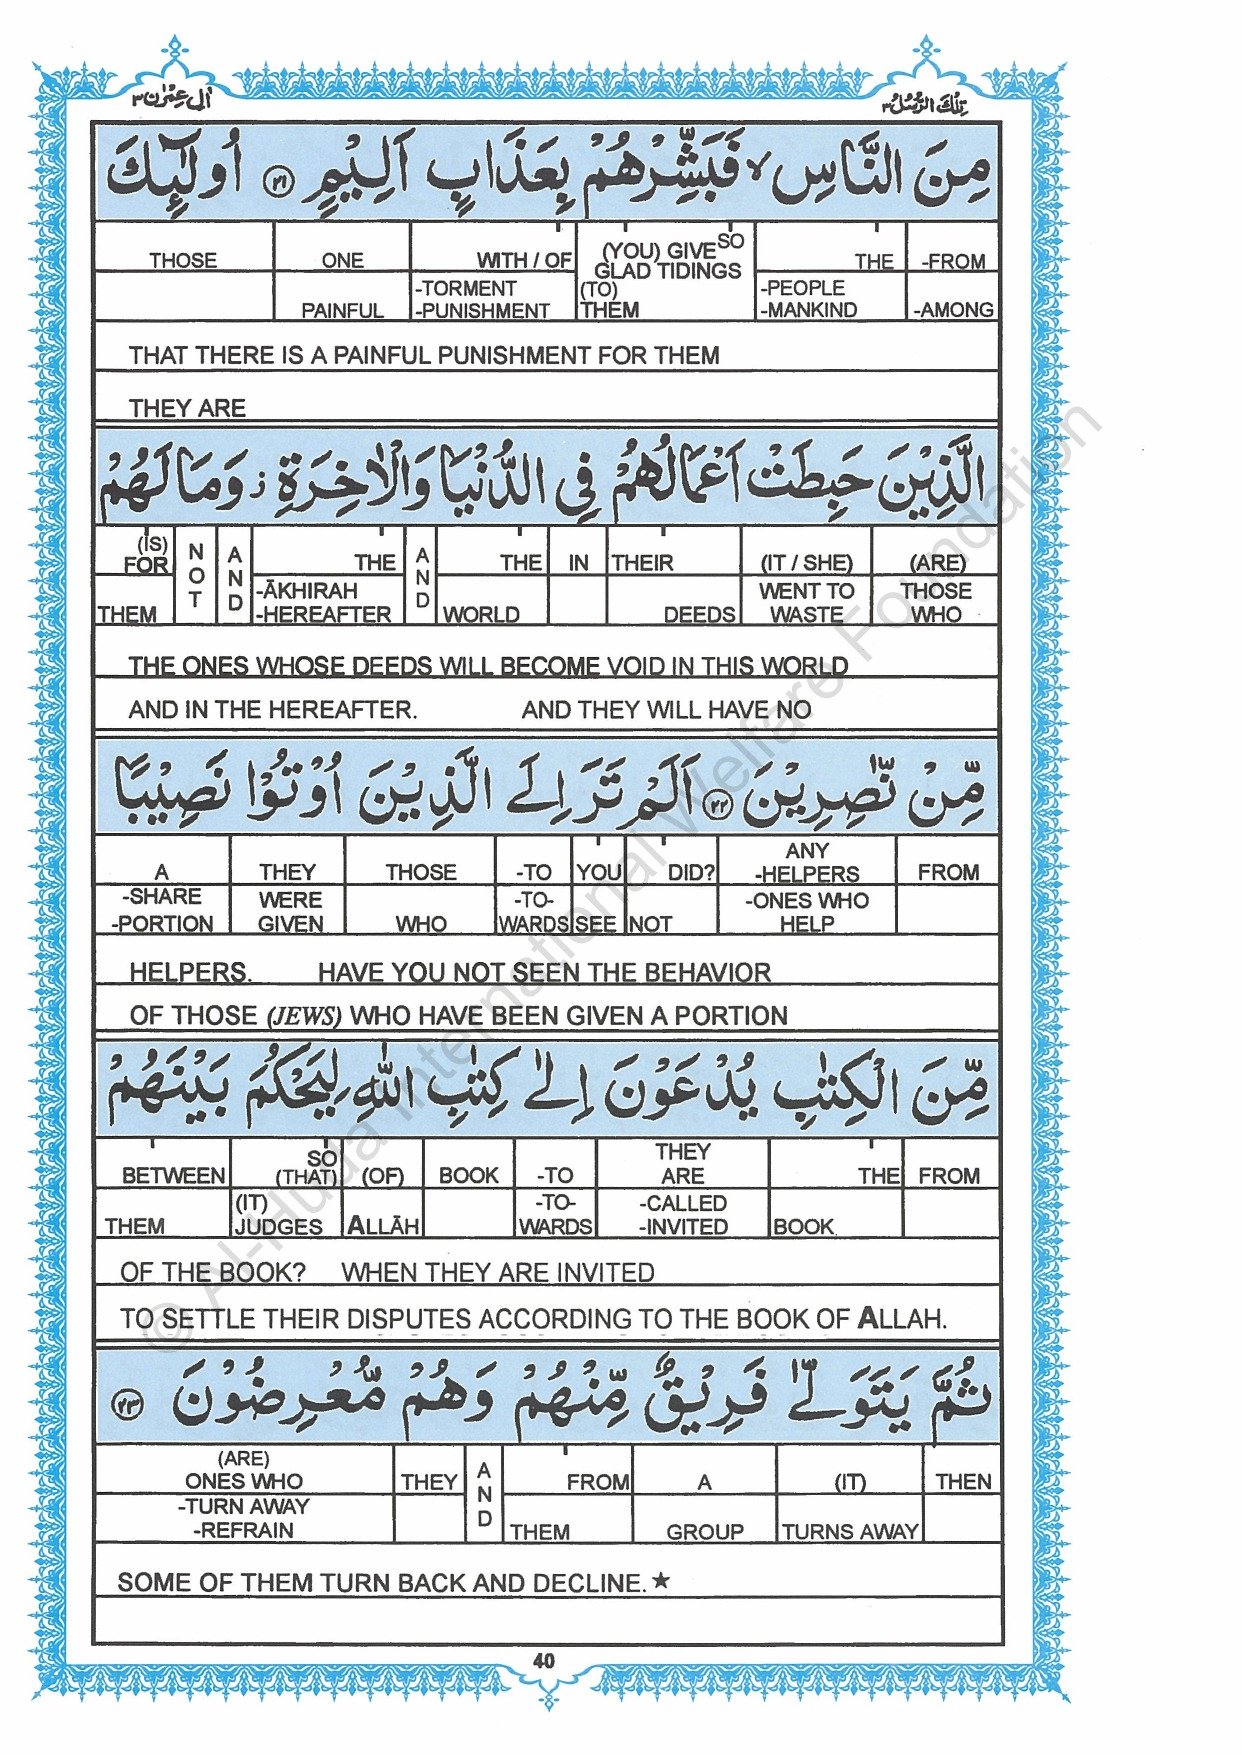 اٰلِ عِمْرٰن ٣
تِلْكَ الرُّسُلُ ٣
مِنَ النَّاسِ ۙ فَبَشِّرْهُمْ بِعَذَابٍ اَلِيْمٍ ۝٢١ اُولٰٓئِكَ
THOSE ONE WITH / OF (YOU) GIVE SO THE -FROM
GLAD TIDINGS
PAINFUL -TORMENT (TO) -PEOPLE
-PUNISHMENT THEM -MANKIND -AMONG
THAT THERE IS A PAINFUL PUNISHMENT FOR THEM
THEY ARE
الَّذِيْنَ حَبِطَتْ اَعْمَالُهُمْ فِى الدُّنْيَا وَالْاٰخِرَةِ ز وَمَا لَهُمْ
(IS) FOR NOT AND THE AND THE IN THEIR (IT / SHE) (ARE)
-ĀKHIRAH WENT TO THOSE
THEM -HEREAFTER WORLD DEEDS WASTE WHO
THE ONES WHOSE DEEDS WILL BECOME VOID IN THIS WORLD
AND IN THE HEREAFTER. AND THEY WILL HAVE NO
مِّنْ نّٰصِرِيْنَ ۝٢٢ اَلَمْ تَرَ اِلَى الَّذِيْنَ اُوْتُوْا نَصِيْبًا
ANY
A THEY THOSE -TO YOU DID? -HELPERS FROM
-SHARE WERE -TO- -ONES WHO
-PORTION GIVEN WHO WARDS SEE NOT HELP
HELPERS. HAVE YOU NOT SEEN THE BEHAVIOR
OF THOSE (JEWS) WHO HAVE BEEN GIVEN A PORTION
مِّنَ الْكِتٰبِ يُدْعَوْنَ اِلٰى كِتٰبِ اللّٰهِ لِيَحْكُمَ بَيْنَهُمْ
SO THEY
BETWEEN (THAT) (OF) BOOK -TO ARE THE FROM
(IT) -TO- -CALLED
THEM JUDGES ALLĀH WARDS -INVITED BOOK
OF THE BOOK? WHEN THEY ARE INVITED
TO SETTLE THEIR DISPUTES ACCORDING TO THE BOOK OF ALLAH.
ثُمَّ يَتَوَلّٰى فَرِيْقٌ مِّنْهُمْ وَهُمْ مُّعْرِضُوْنَ ۝٢٣
(ARE)
ONES WHO THEY AND FROM A (IT) THEN
-TURN AWAY
-REFRAIN THEM GROUP TURNS AWAY
SOME OF THEM TURN BACK AND DECLINE.★
40
© Al-Huda International Welfare Foundation